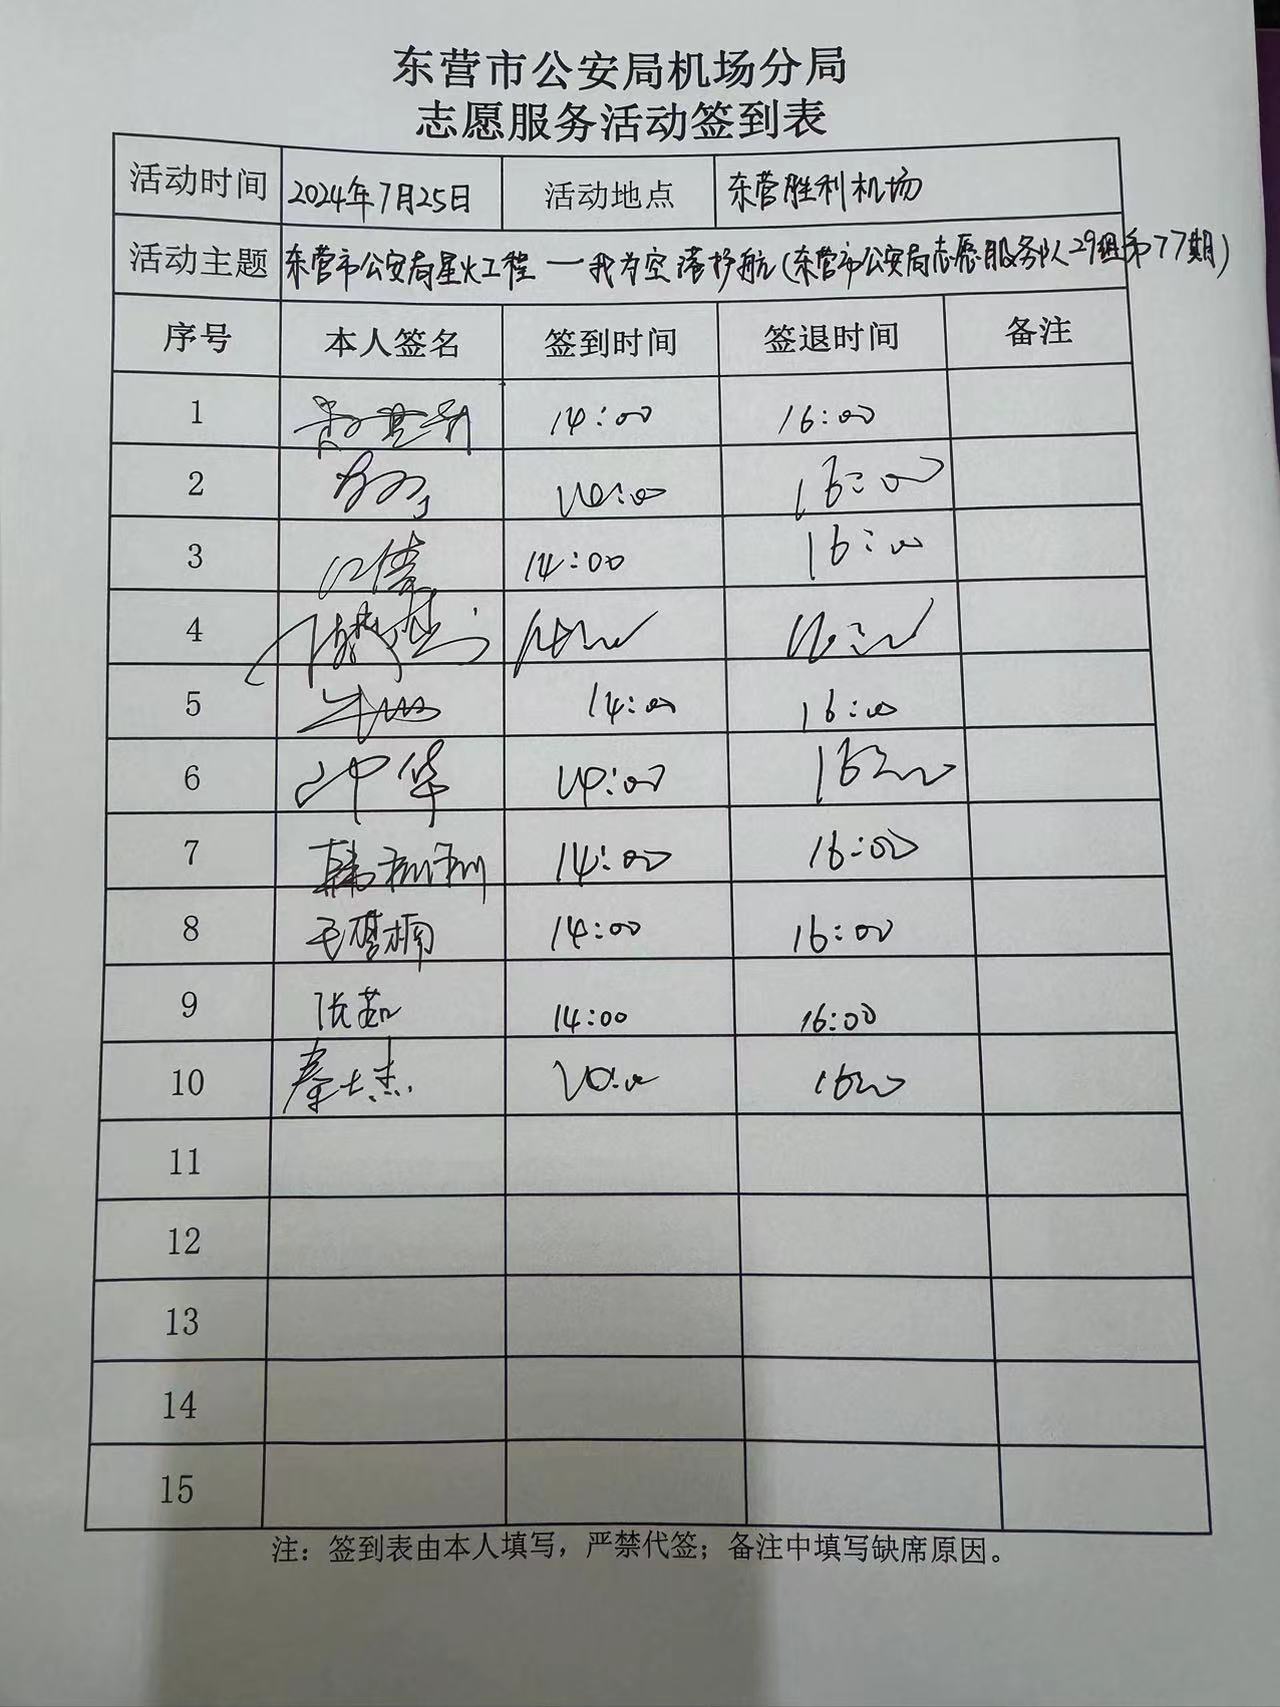 东营市公安局机场分局
志愿服务活动签到表
活动时间 2024年7月25日 活动地点 东营胜利机场
活动主题 东营市公安局星火工程—我为空港护航(东营市公安局志愿服务队29组第77期)
序号 本人签名 签到时间 签退时间 备注
1 14:00 16:00
2 16:00
3 14:00 16:00
4
5 14:00 16:00
6 14:00
7 14:00 16:00
8 14:00 16:00
9 张茹 14:00 16:00
10 秦士杰
11
12
13
14
15
注：签到表由本人填写，严禁代签；备注中填写缺席原因。